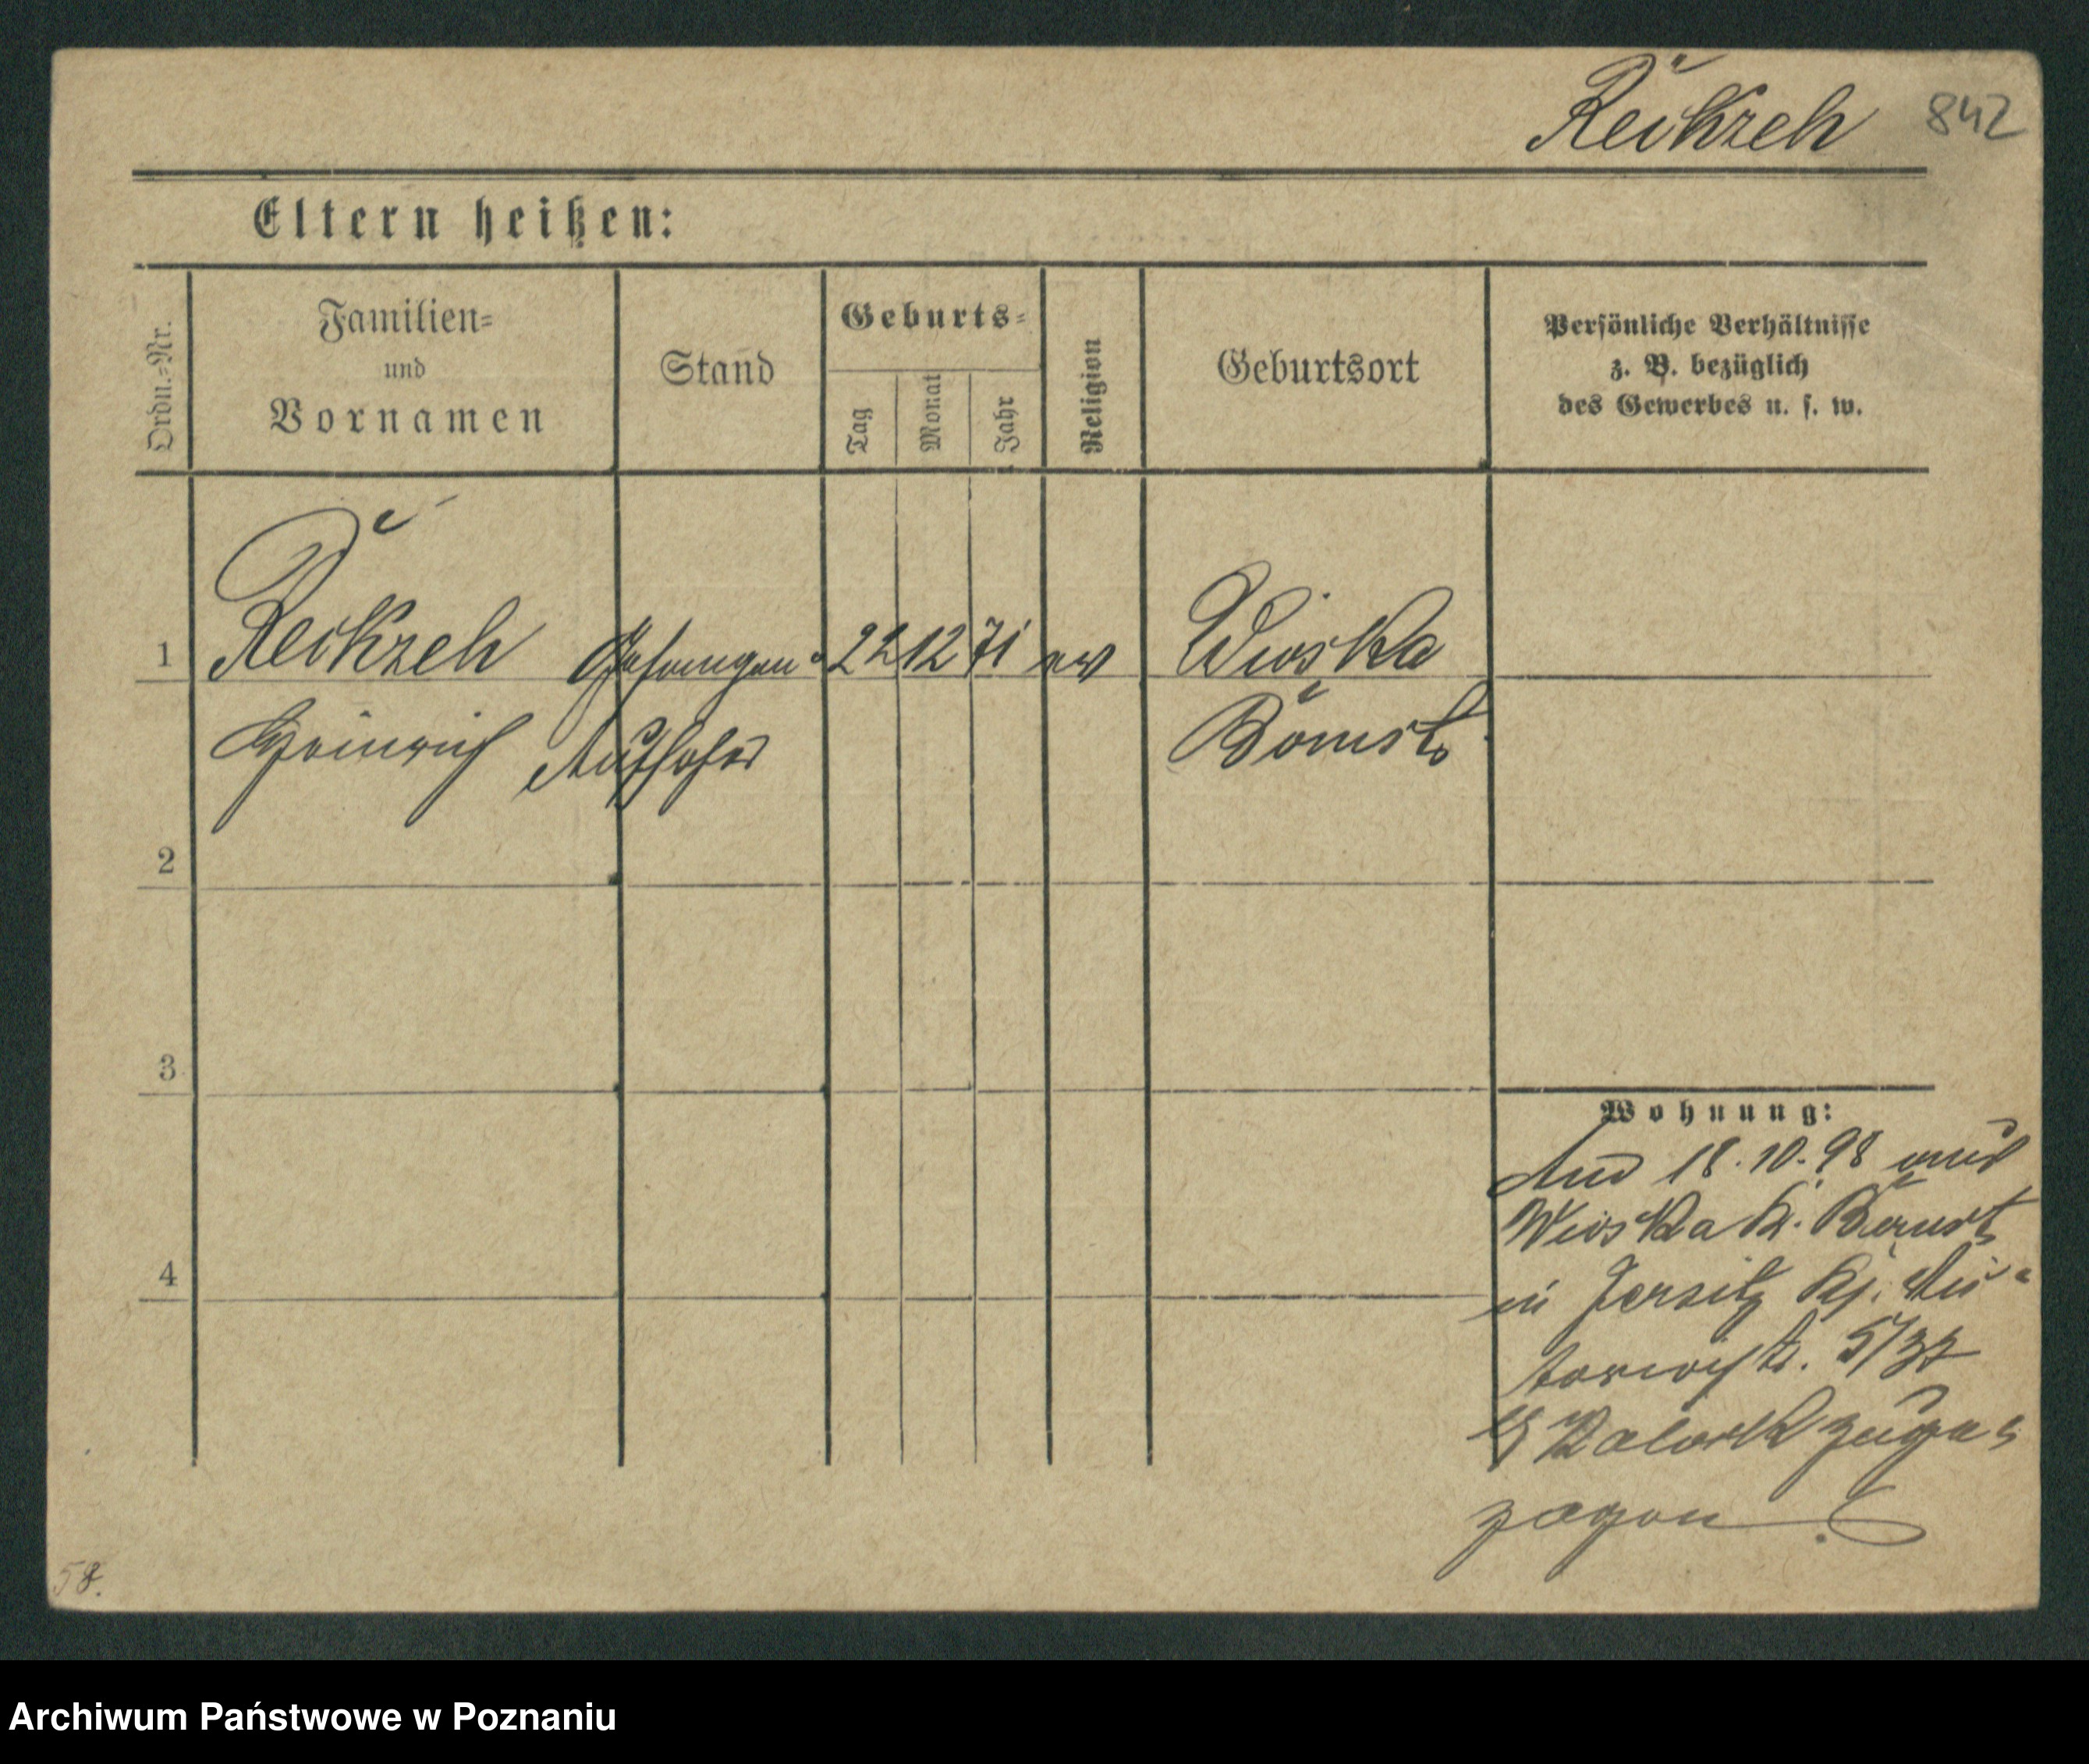 Reikzeh 842
Eltern heißen:
Ordn.=Nr.
Familien=
und
Vornamen
Stand
Geburts=
Tag
Monat
Jahr
Religion
Geburtsort
Persönliche Verhältnisse
z. B. bezüglich
des Gewerbes u. s. w.
1 Reikzeh Gefangen= 22 12 71 ev Wioska
Heinrich Aufseher Bomst
2
3
4
Wohnung:
Am 18.10.98 aus
Wioska K. Bomst
in Jersitz
zuge=
zogen.
58.
Archiwum Państwowe w Poznaniu